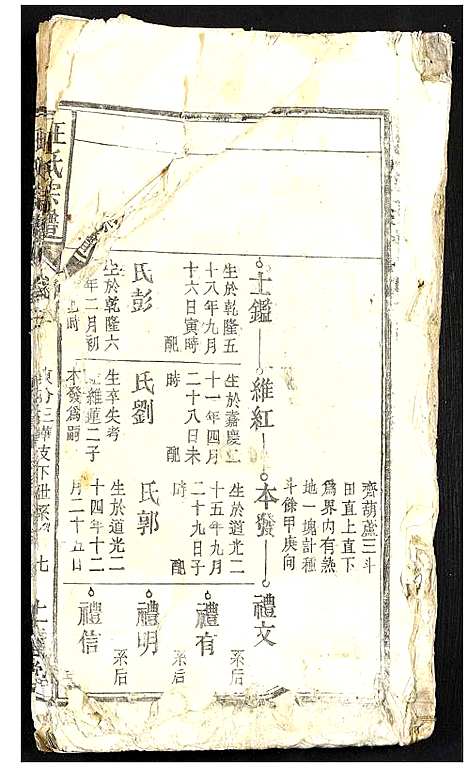 齊葫蘆三斗
田直上直下
爲界內有熱
地一塊計種
斗條甲庚向
士鑑
生於乾隆五
十八年九月
十六日寅時
配
氏彭
生於乾隆六
年二月初
時
維紅
生於嘉慶二
十一年四月
二十八日未
時
配
氏劉
生卒失考
維蓮二子
本發爲嗣
本發
生於道光二
十五年九月
二十九日子
時
配
氏郭
生於道光二
十四年十二
月二十五日
禮文
禮有
系后
禮明
系后
禮信
汪氏宗譜
支下世系
七